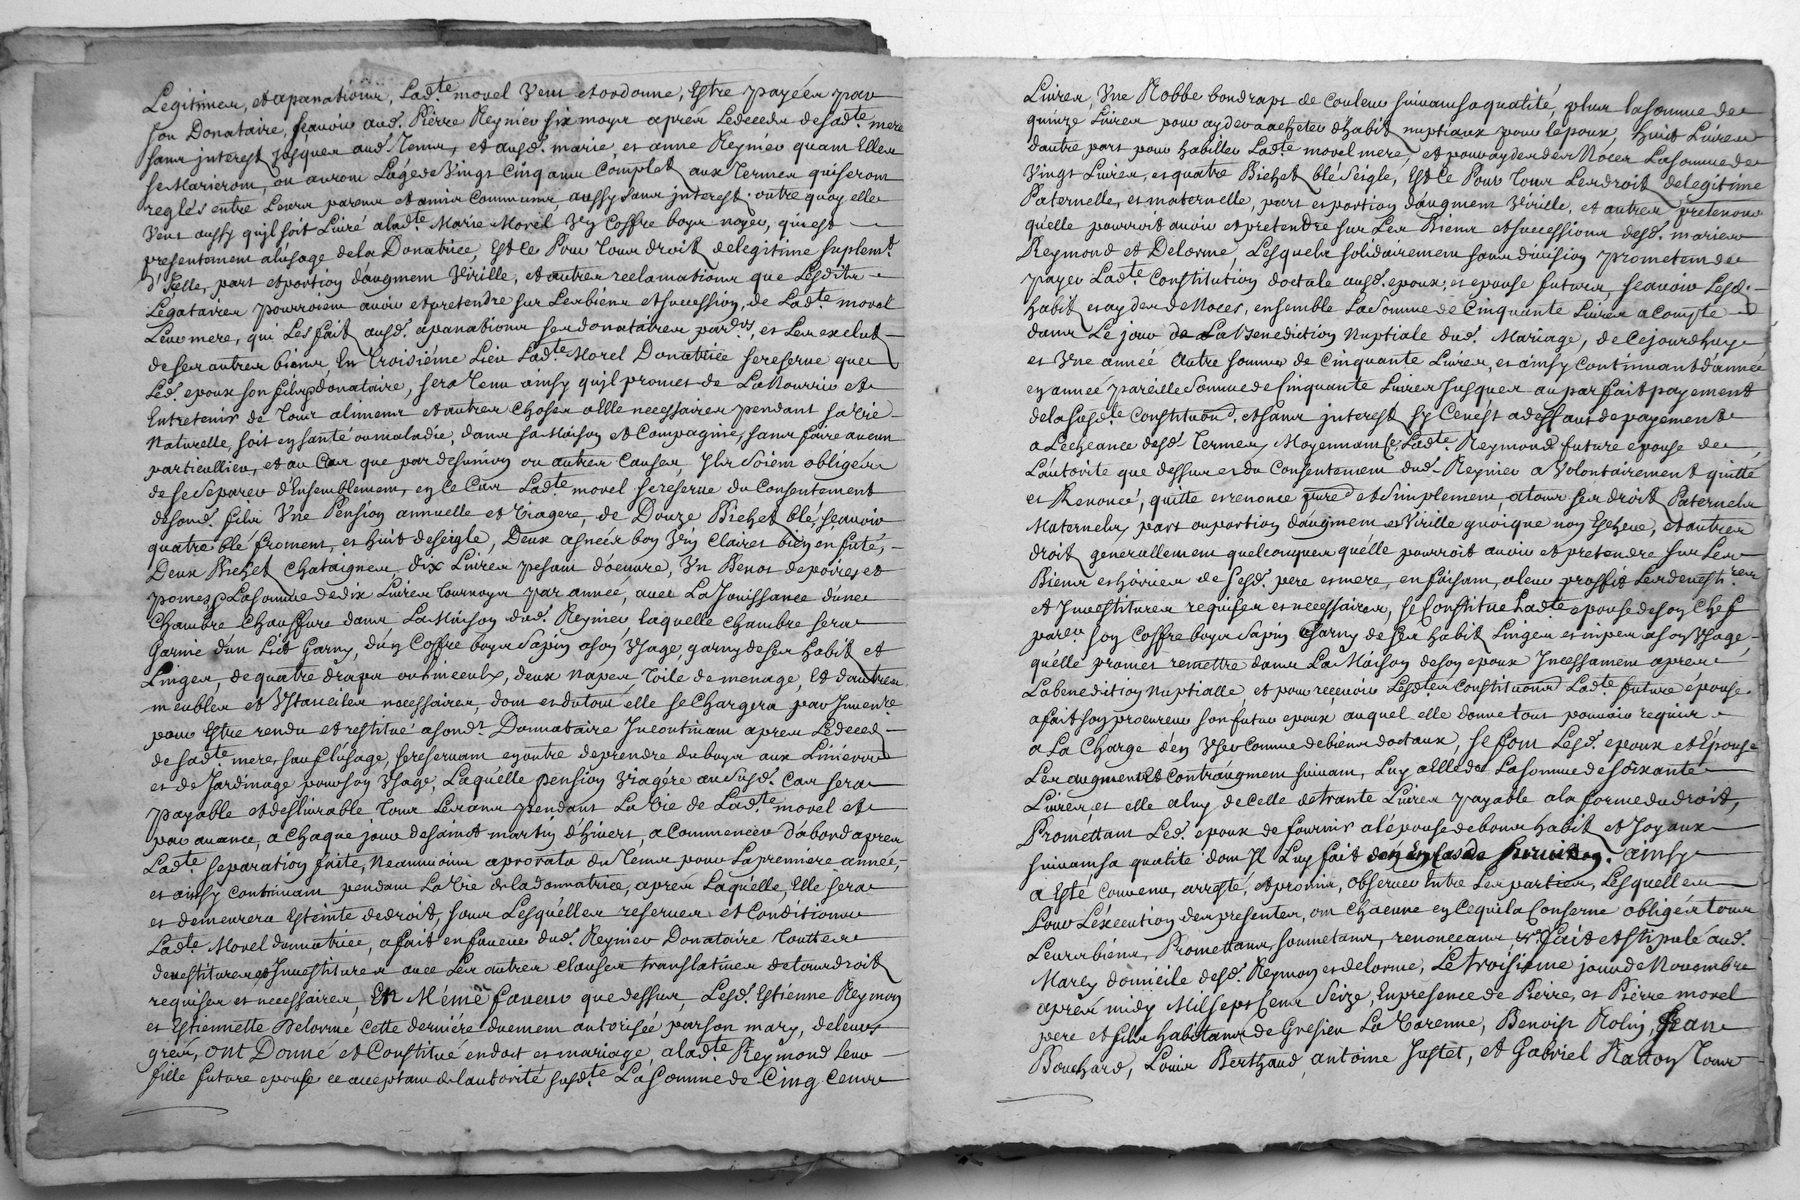 Legitimes, et apanations, Lad.te morel Veut et ordonne, Estre payéés par
son Donataire, scavoir aud. Pierre Reynier six moys aprés Ledeceds desad.te mere
sans jnterest jusques aud. Tems, et ausd. marie et anne Reynier quant Elles
se Marieront, ou auront L'age de Vingt Cinq ans Complet aux Termes quiseront
reglés entre Leurs parens et amis Communs, aussy sans jnterest. outre quoy elle
Veut aussy quil soit Livré alad.te Marie Morel Vn Coffre boys noyer, quiest
presentement alusage dela Donatrice, Est ce Pour Tous droit delegitime suplem.t
d'Icelle, part et portion daugment Virille, et autres reclamations que Lesdits
Légataires pourroient avoir et pretendre sur Lesbiens et succession, de Lad.te morel
Leur mere, qui Les fait ausd. apanations ses donataires par.ers, et Les exclut
de ses autres biens, En Troisiéme Lieu Lad.te Morel Donatrice sereserve que
Led. epoux son fils donataire, sera Tenu ainsy quil promet de LaNourrir et
Entretenir de Tous alimens et autres choses a Elle necessaires pendant saVie
Naturelle, soit en santé oumaladie, dans saMaison et Compagnie, sans faire aucun
particullier, et au Cas que par desunion ou autres Causes, Ils soient obligés
de se Separer d'Ensemblement, en ce Cas Lad.te morel sereserve du Consentement
desond. fils Vne Pension annuelle et Viagere, de Douze Bichet blé, scavoir
quatre blé froment, et huit deseigle, Deux asnées bon Vin Clairet bien enfuté,
Deux Bichet Chataignes, dix Livres pesant d'oeuvre, Vn Benot depoires et
pomes, LaSomme dedix Livres Tournoys par année, avec LaJouissance d'une
Chambre Chauffure dans LaMaison dud. Reynier laquelle chambre sera
Garnie d'un Lict Garny, d'un Coffre boys Sapin ason Vsage, garny deses habit et
Linges, de quatre draps, deux napes Toile de menage, Et d'autres
meubles et Vstanciles necessaires, dont et dutout elle seChargera par Inven.re
pour Estre rendu et restitué asond. Donnataire Incontinant apres Ledeced
desad.te mere, sauf l'usage, sereservant en outre deprendre duboys aux
et de Jardinage pourson Vsage, Laquelle pension Viagére aususd. Cas sera
payable et deslivrable Tous Lesans pendant La Vie de Lad.te morel et
par avance, a Chaque jour desainct martin d'hivert, a Commencer d'abord apres
Lad.te separation faite, Neanmoins aprorata du Tems pour Lapremiere année,
et ainsy Continuant pendant LaVie deladonnatrice, apres Laquelle, Elle sera
et demeurera Esteinte dedroit, sous Lesquelles reserves et Conditions
Lad.te Morel donnatrice, afait enfaveur dud. Reynier Donataire Touttes
devestitures et Investitures avec Les autres clauses translatives detousdroit
requises et necessaires, En Méme faveur que dessus, Lesd. Estienne Reymon
et Estiennette Delorme, cette derniére duement autorisée parson mary, deleurs
grés, ont Donné et Constitué endot et mariage, alad.te Reymond Leur
fille future epouse ce acceptant del'autorité susd.te LaSomme de Cinq cens
Livres, Vne Robbe bon drapt de couleur suivant saqualité, plus lasomme de
quinze Livres pour ayder aacheter d'habit nuptiaux pour lepoux, huit Livres
dautre part pour habiller Lad.te morel mere, et pour ayder des Noces Lasomme de
Vingt Livres, et quatre Bichet blé Seigle, Est Ce Pour Tous Les droit delegitime
Paternelle, et maternelle, part et portion daugment Virille, et autres pretentions
qu'elle pourroit avoir et pretendre sur Les Biens et successions desd. mariés
Reymond et Delorme, Lesquels solidairement sans division prometent de
payer Lad.te Constitution doctale ausd. epoux, et epouse futurs, scavoir Lesd.
habit et ayder de Noces, ensemble LaSomme de Cinquante Livres acompte
dans Le jour de LaBenediction Nuptiale dud. Mariage, de Cejourdhuy
et Vne année Autre somme de Cinquante Livres, et ainsy Continuant d'année
en année pareille Somme de Cinquante Livres Jusques au parfait payement
delasusd.te Constitution, et sans jnterest sy Cenest adeffaut de payement
a Lecheance desd. Termes, Moyennant Ce Lad.te Reymond future epouse de
L'autorité que dessus et du Consentement dud. Reynier a Volontairement quitté
et Renoncé, quitte et renonce pure et Simplement, atous ses droit Paternels
Maternels, part ou portion d'augment et Virille quoique non Escheue, et autres
droit generallement quelconques qu'elle pourroit avoir et pretendre sur Les
Biens et hoiries de Sesd. pere et mere, en faisant, aleur proffit Lesdevest.res
et Investitures requises et necessaires, Se Constitue Lad.te epouse deson Chef
par.er son Coffre boys Sapin Garny deses habit Linges et nipes ason Vsage,
qu'elle promet remettre dans LaMaison deson epoux Incessament apres
Labenediction Nuptialle, et pour recevoir Lesd.tes Constitutions Lad.te future épouse
afait son procureur sonfutur epoux, auquel elle donne tout pouvoir requis
a La Charge d'en Vser Comme debiens doctaux, se font Lesd. epoux et Epouse
Les augment et Contraugment suivant, Luy aElle de Lasomme desoixante
Livres, et elle aluy de celle detrante Livres payable ala forme du droit,
Promettant Led. epoux de fournir al'épouse debons habit et Joyaux
suivant sa qualité dont Il Luy fait don en cas de survie. ainsy
a Esté Convenu, arresté, et promis, observer Entre Les parties, Lesquelles
Pour L'execution des presentes, ont chacune en Cequila Conserne obligés tous
Leurs biens, Promettans, soumetans, renonceans &.a fait et stipulé aud.
Marcy domicile desd. Reymon et delorme, Le troisieme jour de Novembre
aprés midy Mil sept Cens Seize, Enpresence de Pierre, et Pierre morel
pere et fils habitans de Gresieu La Varenne, Benoist Rolin, Jean
Bouchard, Louis Berthaud, antoine Justet, et Gabriel Ratton Tous